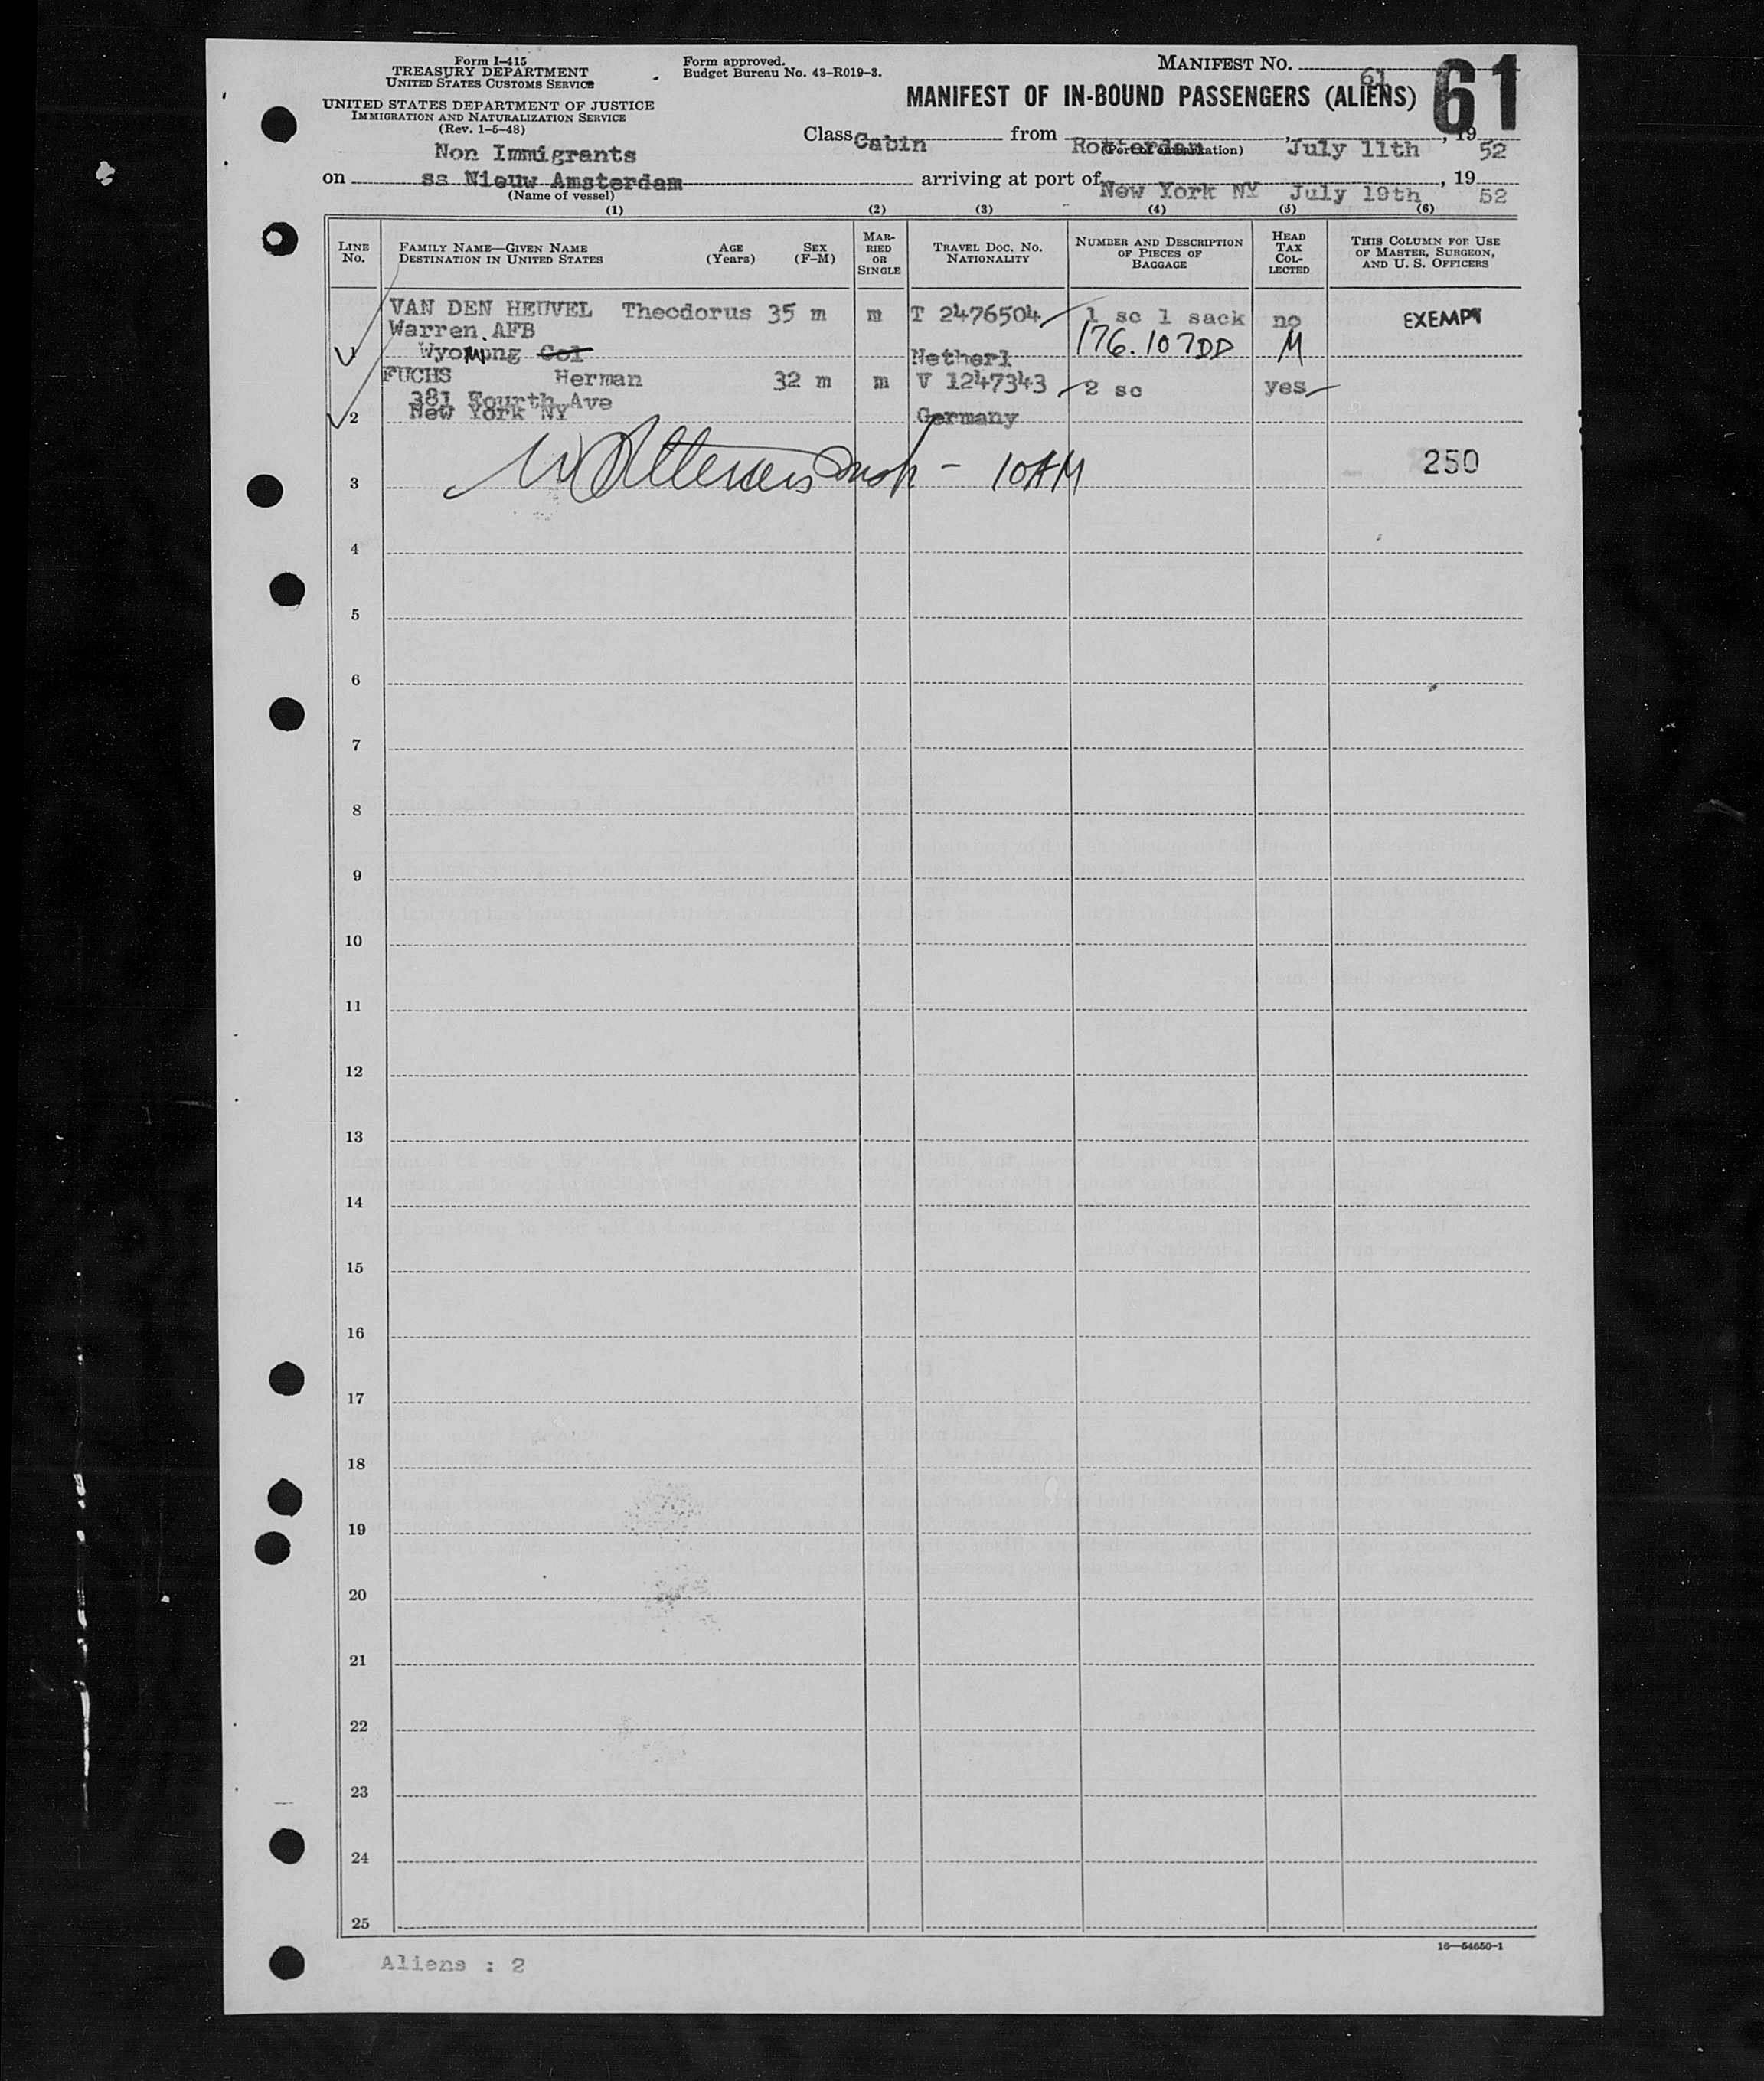 Form I-415
TREASURY DEPARTMENT
UNITED STATES CUSTOMS SERVICE
UNITED STATES DEPARTMENT OF JUSTICE
IMMIGRATION AND NATURALIZATION SERVICE
(Rev. 1-5-48)
Form approved.
Budget Bureau No. 43-R019-3.
MANIFEST NO. 61
61
MANIFEST OF IN-BOUND PASSENGERS (ALIENS)
Class Cabin from Rotterdam, July 11th, 19 52
(Port of embarkation)
Non Immigrants
on ss Nieuw Amsterdam arriving at port of New York NY July 19th, 19 52
(Name of vessel)
(1) (2) (3) (4) (5) (6)
LINE NO. FAMILY NAME—GIVEN NAME DESTINATION IN UNITED STATES AGE (Years) SEX (F-M) MARRIED OR SINGLE TRAVEL DOC. NO. NATIONALITY NUMBER AND DESCRIPTION OF PIECES OF BAGGAGE HEAD TAX COLLECTED THIS COLUMN FOR USE OF MASTER, SURGEON, AND U. S. OFFICERS
VAN DEN HEUVEL Theodorus 35 m m T 2476504 1 sc 1 sack no EXEMPT
Warren AFB
1 Wyomong Col Netherl 176.107DD M
FUCHS Herman 32 m m V 1247343 2 sc yes
381 Fourth Ave
2 New York NY Germany
3 10AM 250
4
5
6
7
8
9
10
11
12
13
14
15
16
17
18
19
20
21
22
23
24
25
16—54650-1
Aliens : 2